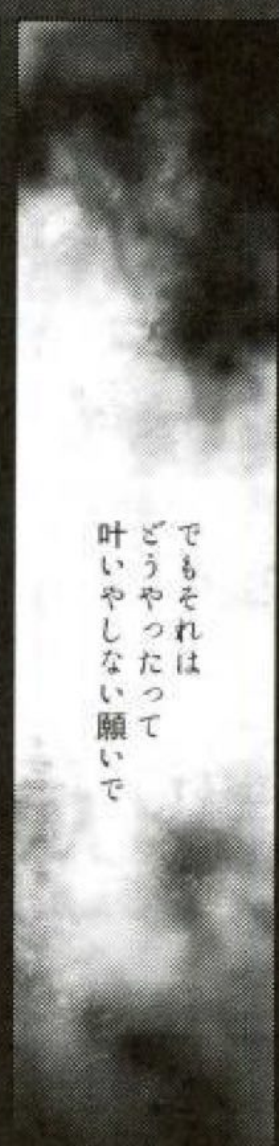 でもそれは
どうやったって
叶いやしない願いで